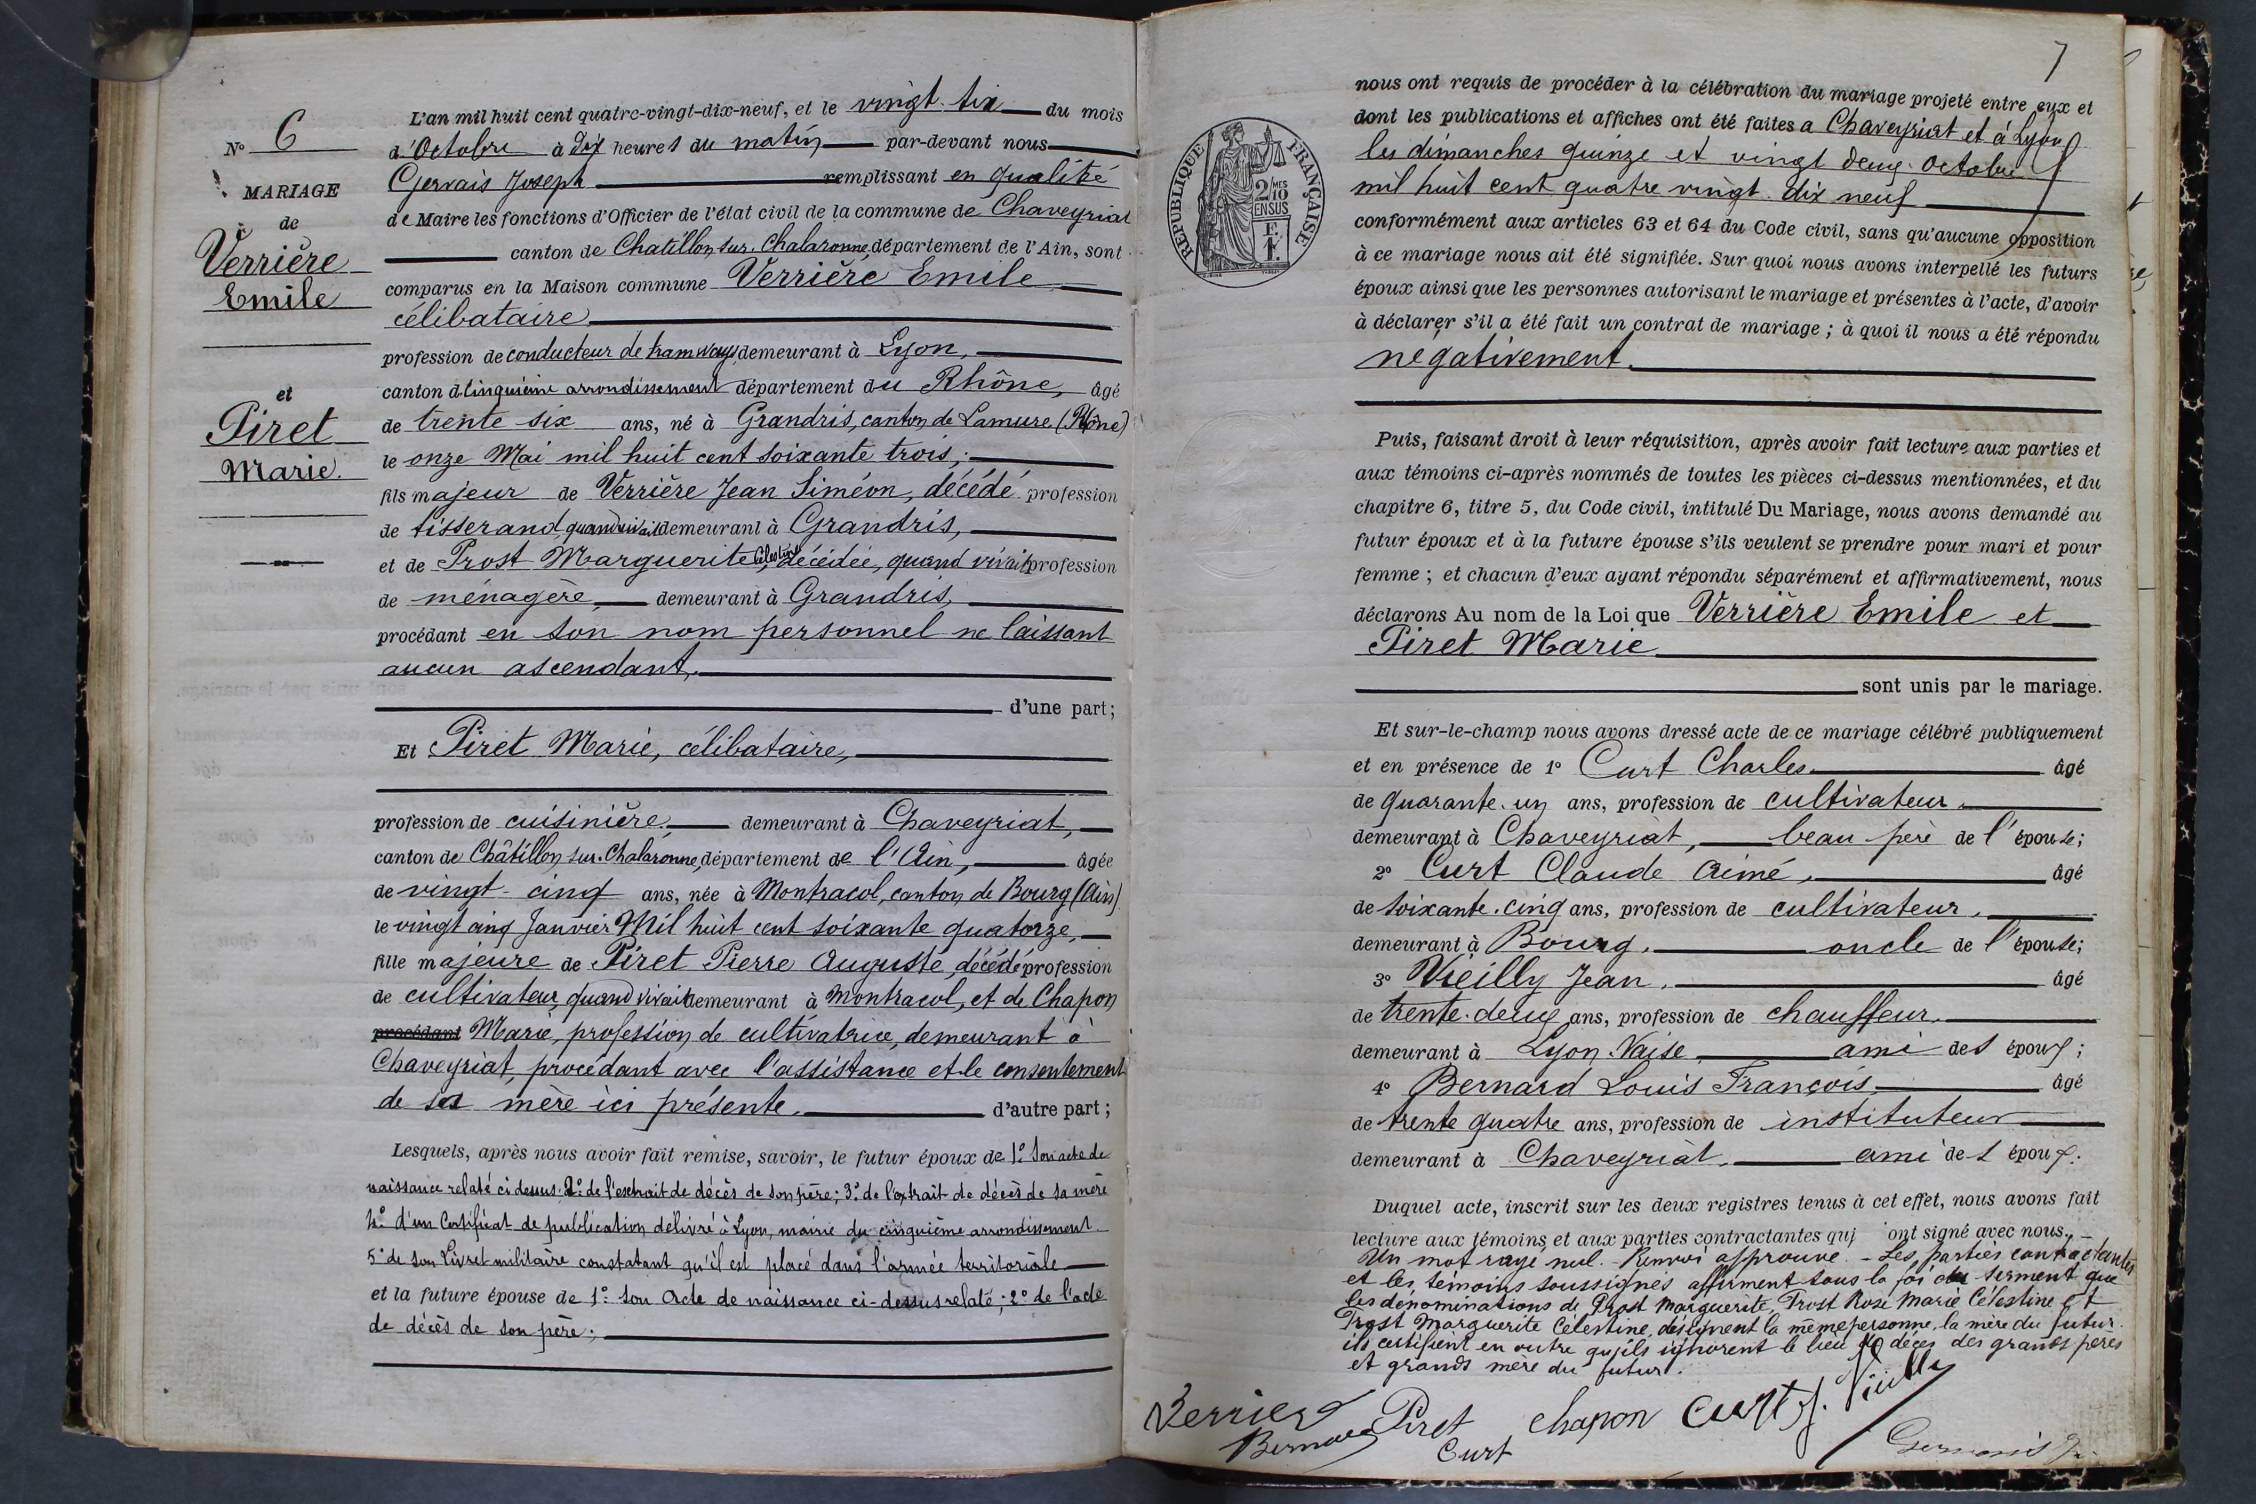 N° 6
MARIAGE
de
Verrière
Emile
et
Piret
Marie.
L'an mil huit cent quatre-vingt-dix-neuf, et le vingt-six du mois
d'Octobre à dix heures du matin par-devant nous
Gervais Joseph remplissant en qualité
de Maire les fonctions d'Officier de l'état civil de la commune de Chaveyriat
canton de Chatillon sur Chalaronne, département de l'Ain, sont
comparus en la Maison commune Verrière Emile
célibataire
profession de conducteur de tramways demeurant à Lyon,
canton d cinquième arrondissement département du Rhône, âgé
de trente six ans, né à Grandris, canton de Lamure (Rhône)
le onze Mai mil huit cent soixante trois,
fils majeur de Verrière Jean Siméon, décédé profession
de tisserand, quand vivait demeurant à Grandris,
et de Prost Marguerite Célestine, décédée, quand vivait profession
de ménagère, demeurant à Grandris,
procédant en son nom personnel ne laissant
aucun ascendant,
d'une part;
Et Piret Marie, célibataire,
profession de cuisinière, demeurant à Chaveyriat,
canton de Châtillon sur Chalaronne, département de l'Ain, âgée
de vingt-cinq ans, née à Montracol, canton de Bourg (Ain)
le vingt cinq Janvier Mil huit cent soixante quatorze,
fille majeure de Piret Pierre Auguste, décédé profession
de cultivateur, quand vivait demeurant à Montracol, et de Chapon
procédant Marie, profession de cultivatrice, demeurant à
Chaveyriat, procédant avec l'assistance et le consentement
de sa mère ici présente. d'autre part;
Lesquels, après nous avoir fait remise, savoir, le futur époux de 1° Son acte de
naissance relaté ci dessus; 2° de l'extrait de décès de son père; 3° de l'extrait de décès de sa mère
4° d'un Certificat de publication délivré à Lyon, mairie du cinquième arrondissement
5° de son Livret militaire constatant qu'il est placé dans l'armée territoriale
et la future épouse de 1° Son Acte de naissance ci-dessus relaté; 2° de l'acte
de décès de son père;
7
RÉPUBLIQUE FRANÇAISE
2/10 MES
EN SUS
1 F.
nous ont requis de procéder à la célébration du mariage projeté entre eux et
dont les publications et affiches ont été faites a Chaveyriat et à Lyon
les dimanches quinze et vingt deux octobre
mil huit cent quatre vingt dix neuf
conformément aux articles 63 et 64 du Code civil, sans qu'aucune opposition
à ce mariage nous ait été signifiée. Sur quoi nous avons interpellé les futurs
époux ainsi que les personnes autorisant le mariage et présentes à l'acte, d'avoir
à déclarer s'il a été fait un contrat de mariage; à quoi il nous a été répondu
négativement.
Puis, faisant droit à leur réquisition, après avoir fait lecture aux parties et
aux témoins ci-après nommés de toutes les pièces ci-dessus mentionnées, et du
chapitre 6, titre 5, du Code civil, intitulé Du Mariage, nous avons demandé au
futur époux et à la future épouse s'ils veulent se prendre pour mari et pour
femme; et chacun d'eux ayant répondu séparément et affirmativement, nous
déclarons Au nom de la Loi que Verrière Emile et
Piret Marie
sont unis par le mariage.
Et sur-le-champ nous avons dressé acte de ce mariage célébré publiquement
et en présence de 1° Curt Charles âgé
de quarante-un ans, profession de cultivateur,
demeurant à Chaveyriat, beau père de l'épouse;
2° Curt Claude Aimé, âgé
de soixante-cinq ans, profession de cultivateur,
demeurant à Bourg, oncle de l'épouse;
3° Vieilly Jean, âgé
de trente-deux ans, profession de chauffeur,
demeurant à Lyon-Vaise ami des époux;
4° Bernard Louis François, âgé
de trente quatre ans, profession de instituteur
demeurant à Chaveyriat, ami des époux.
Duquel acte, inscrit sur les deux registres tenus à cet effet, nous avons fait
lecture aux témoins et aux parties contractantes qui ont signé avec nous.
Un mot rayé nul. Renvoi approuvé. - Les parties contractantes
et les témoins soussignés affirment sous la foi du serment que
les dénominations de Prost Marguerite, Prost Rose Marie Célestine et
Prost Marguerite Célestine, désignent la même personne, la mère du futur.
ils certifient en outre qu'ils ignorent le lieu de décès des grands pères
et grands mère du futur.
Verrière Piret Chapon Curt J. Vieilly
Bernard Curt Gervais J.